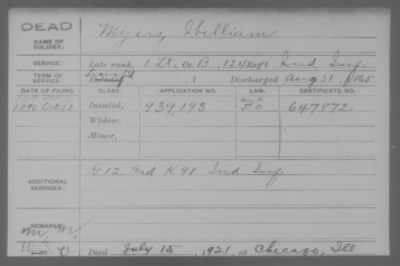 DEAD
NAME OF SOLDIER: Myers, William
SERVICE: Late rank, 1 Lt. Co. B, 124 Reg't Ind Inf.
TERM OF SERVICE: Enlisted , 1 Discharged Aug 31, 1865
DATE OF FILING. CLASS. APPLICATION NO. LAW. CERTIFICATE NO.
1890 Oct 21 Invalid, 939,193 647872
Widow,
Minor,
ADDITIONAL SERVICES: G 12 and K 91 Ind Inf.
REMARKS:
M. M.
Died July 15, 1921, at Chicago, Ill